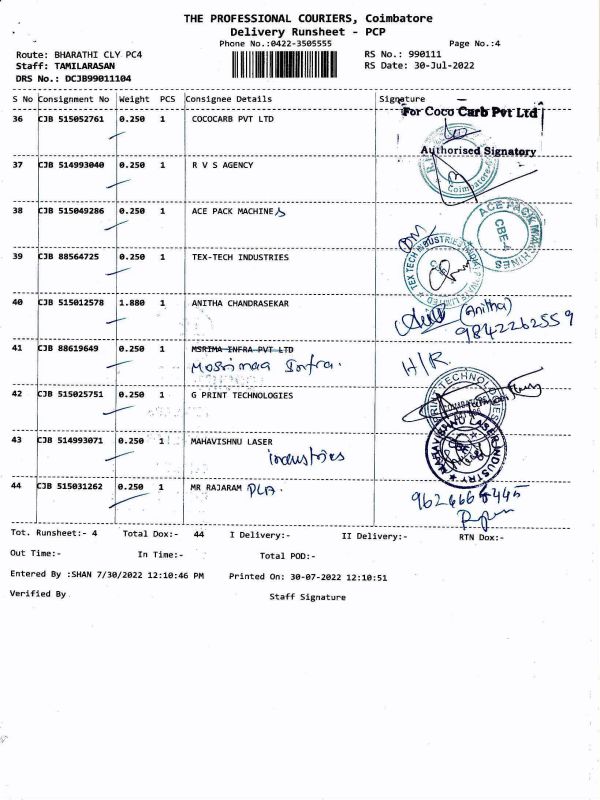 THE PROFESSIONAL COURIERS, Coimbatore
Delivery Runsheet - PCP
Phone No.:0422-3505555 Page No.:4
Route: BHARATHI CLY PC4 RS No.: 990111
Staff: TAMILARASAN RS Date: 30-Jul-2022
DRS No.: DCJB99011104
S No Consignment No Weight PCS Consignee Details Signature
For Coco Carb Pvt Ltd
36 CJB 515052761 0.250 1 COCOCARB PVT LTD
Authorised Signatory
37 CJB 514993040 0.250 1 R V S AGENCY
Coimbatore
38 CJB 515049286 0.250 1 ACE PACK MACHINES
ACE PACK MACHINES
CBE-4
39 CJB 88564725 0.250 1 TEX-TECH INDUSTRIES
TEX TECH INDUSTRIES (INDIA) PRIVATE LIMITED
40 CJB 515012578 1.880 1 ANITHA CHANDRASEKAR
(Anitha)
9842262559
41 CJB 88619649 0.250 1 MSRIMA INFRA PVT LTD
Mosrimaa Infra. H/R
42 CJB 515025751 0.250 1 G PRINT TECHNOLOGIES
PRINT TECHNOLOGIES
43 CJB 514993071 0.250 1 MAHAVISHNU LASER
industries
MAHAVISHNU LASER INDUSTRY
44 CJB 515031262 0.250 1 MR RAJARAM PLA.
Tot. Runsheet:- 4 Total Dox:- 44 I Delivery:- II Delivery:- RTN Dox:-
Out Time:- In Time:- Total POD:-
Entered By :SHAN 7/30/2022 12:10:46 PM Printed On: 30-07-2022 12:10:51
Verified By Staff Signature